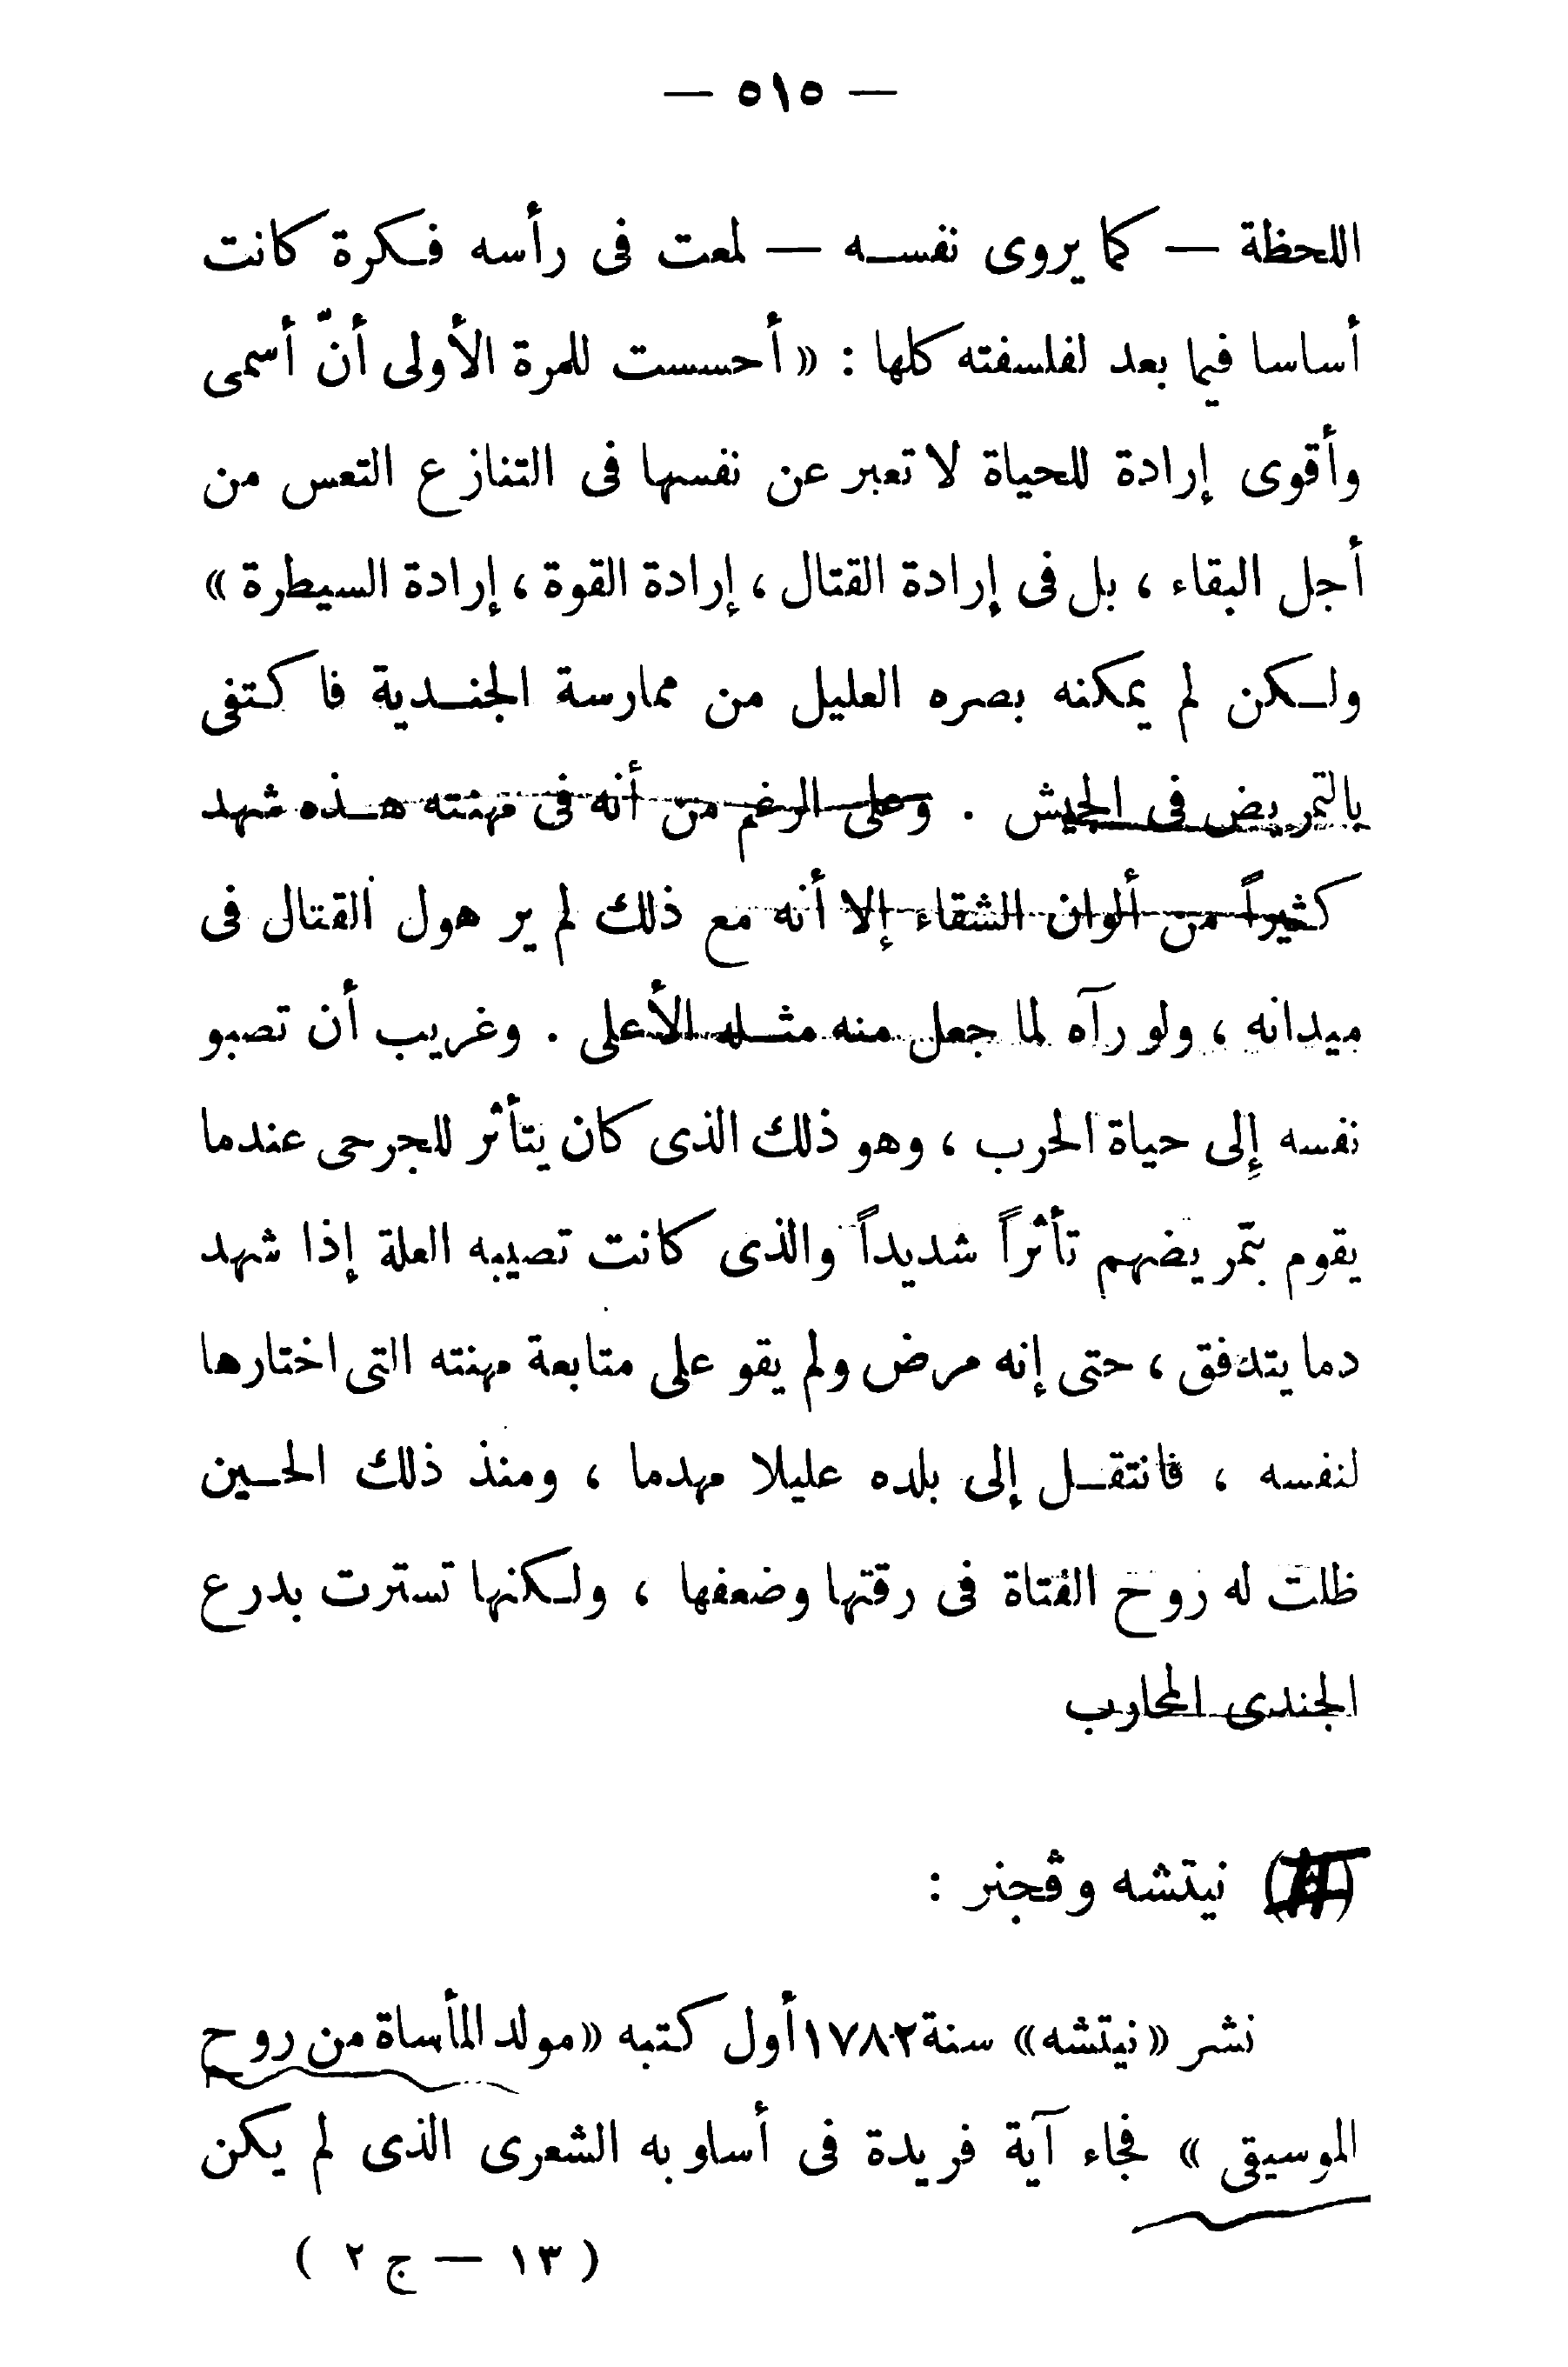 — ٥١٥ —
اللحظة — كما يروى نفسه — لمعت فى رأسه فكرة كانت
أساسا فيما بعد لفلسفته كلها : « أحسست للمرة الأولى أنّ أسمى
وأقوى إرادة للحياة لا تعبر عن نفسها فى التنازع التعس من
أجل البقاء ، بل فى إرادة القتال ، إرادة القوة ، إرادة السيطرة »
ولكن لم يمكنه بصره العليل من ممارسة الجندية فاكتفى
بالتمريض فى الجيش . وعلى الرغم من أنه فى مهنته هذه شهد
كثيراً من ألوان الشقاء إلا أنه مع ذلك لم ير هول القتال فى
ميدانه ، ولو رآه لما جعل منه مثله الأعلى . وغريب أن تصبو
نفسه إلى حياة الحرب ، وهو ذلك الذى كان يتأثر للجرحى عندما
يقوم بتمريضهم تأثراً شديداً والذى كانت تصيبه العلة إذا شهد
دما يتدفق ، حتى إنه مرض ولم يقو على متابعة مهنته التى اختارها
لنفسه ، فانتقل إلى بلده عليلا مهدما ، ومنذ ذلك الحين
ظلت له روح الفتاة فى رقتها وضعفها ، ولكنها تسترت بدرع
الجندى المحارب
نيتشه وڤجنر :
نشر «نيتشه» سنة ١٧٨٢ أول كتبه «مولد المأساة من روح
الموسيقى » فجاء آية فريدة فى أسلوبه الشعرى الذى لم يكن
( ١٣ — ج ٢ )